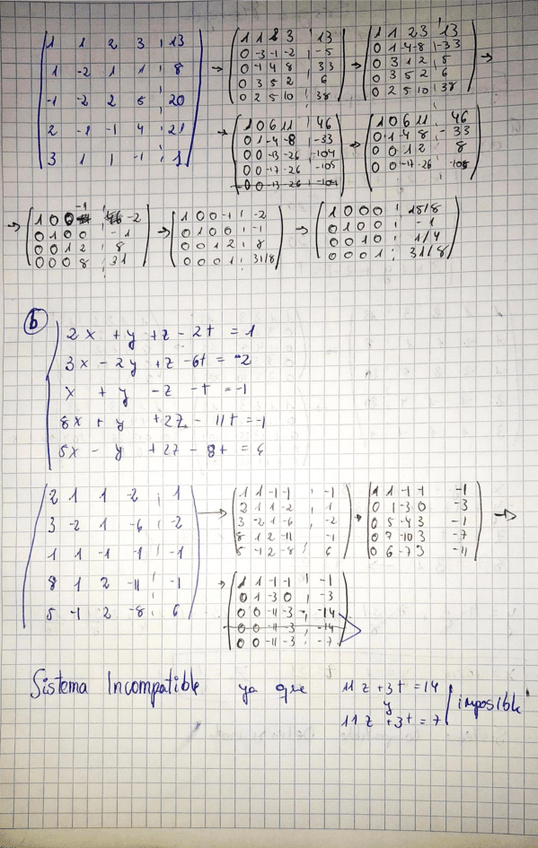 1 1 2 3 13
1 -2 1 1 8
-1 -2 2 5 20
2 -1 -1 4 21
3 1 1 -1 1
→
1 1 2 3 13
0 -3 -1 -2 -5
0 -1 4 8 33
0 3 5 2 6
0 2 5 10 38
→
1 1 2 3 13
0 1 -4 -8 -33
0 3 1 2 5
0 3 5 2 6
0 2 5 10 38
→
→
1 0 6 11 46
0 1 -4 -8 -33
0 0 -13 -26 -104
0 0 -17 -26 -105
0 0 -13 -26 -104
→
1 0 6 11 46
0 1 -4 8 -33
0 0 1 2 8
0 0 -17 -26 -105
→
1 0 0 -1 -2
0 1 0 0 -1
0 0 1 2 8
0 0 0 8 31
→
1 0 0 -1 -2
0 1 0 0 -1
0 0 1 2 8
0 0 0 1 31/8
→
1 0 0 0 15/8
0 1 0 0 -1
0 0 1 0 1/4
0 0 0 1 31/8
b
2x + y + z - 2t = 1
3x - 2y + z - 6t = -2
x + y - z - t = -1
8x + y + 2z - 11t = -1
5x - y + 2z - 8t = 6
2 1 1 -2 1
3 -2 1 -6 -2
1 1 -1 -1 -1
8 1 2 -11 -1
5 -1 2 -8 6
→
1 1 -1 -1 -1
2 1 1 -2 1
3 -2 1 -6 -2
8 1 2 -11 -1
5 -1 2 -8 6
→
1 1 -1 -1 -1
0 1 -3 0 -3
0 5 -4 3 -1
0 7 -10 3 -7
0 6 -7 3 -11
→
→
1 1 -1 -1 -1
0 1 -3 0 -3
0 0 -11 -3 -14
0 0 -11 -3 -14
0 0 -11 -3 -7
Sistema Incompatible ya que 11z + 3t = 14
y
11z + 3t = 7
imposible